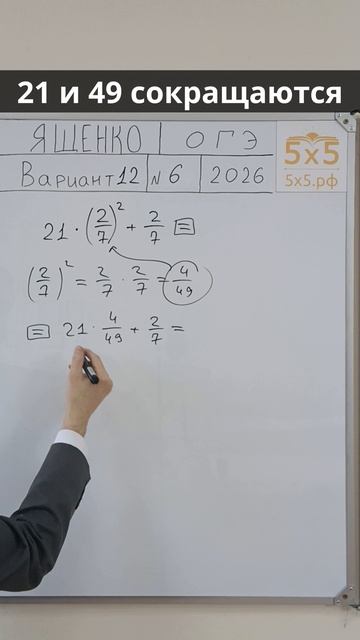 21 и 49 сокращаются
ЯЩЕНКО | ОГЭ
Вариант 12 | №6 | 2026
5х5
5х5.рф
21 · (2/7)² + 2/7 =
(2/7)² = 2/7 · 2/7 = 4/49
= 21 · 4/49 + 2/7 =